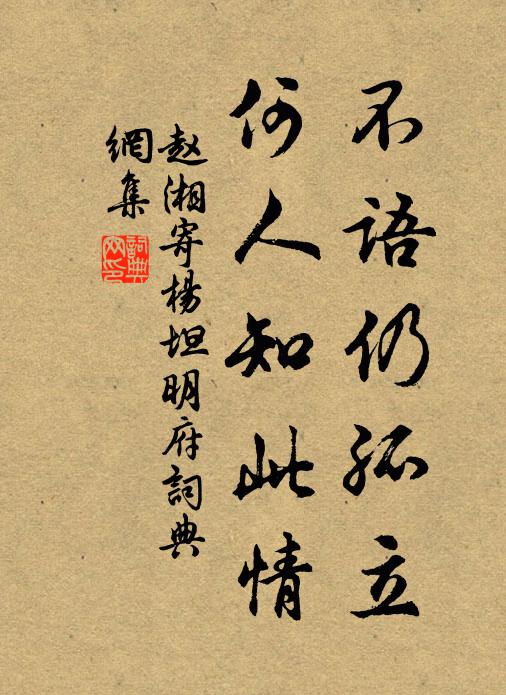 不語仍孤立
何人知此情
赵湘寄楊坦明府詞典
網集
詞典网印